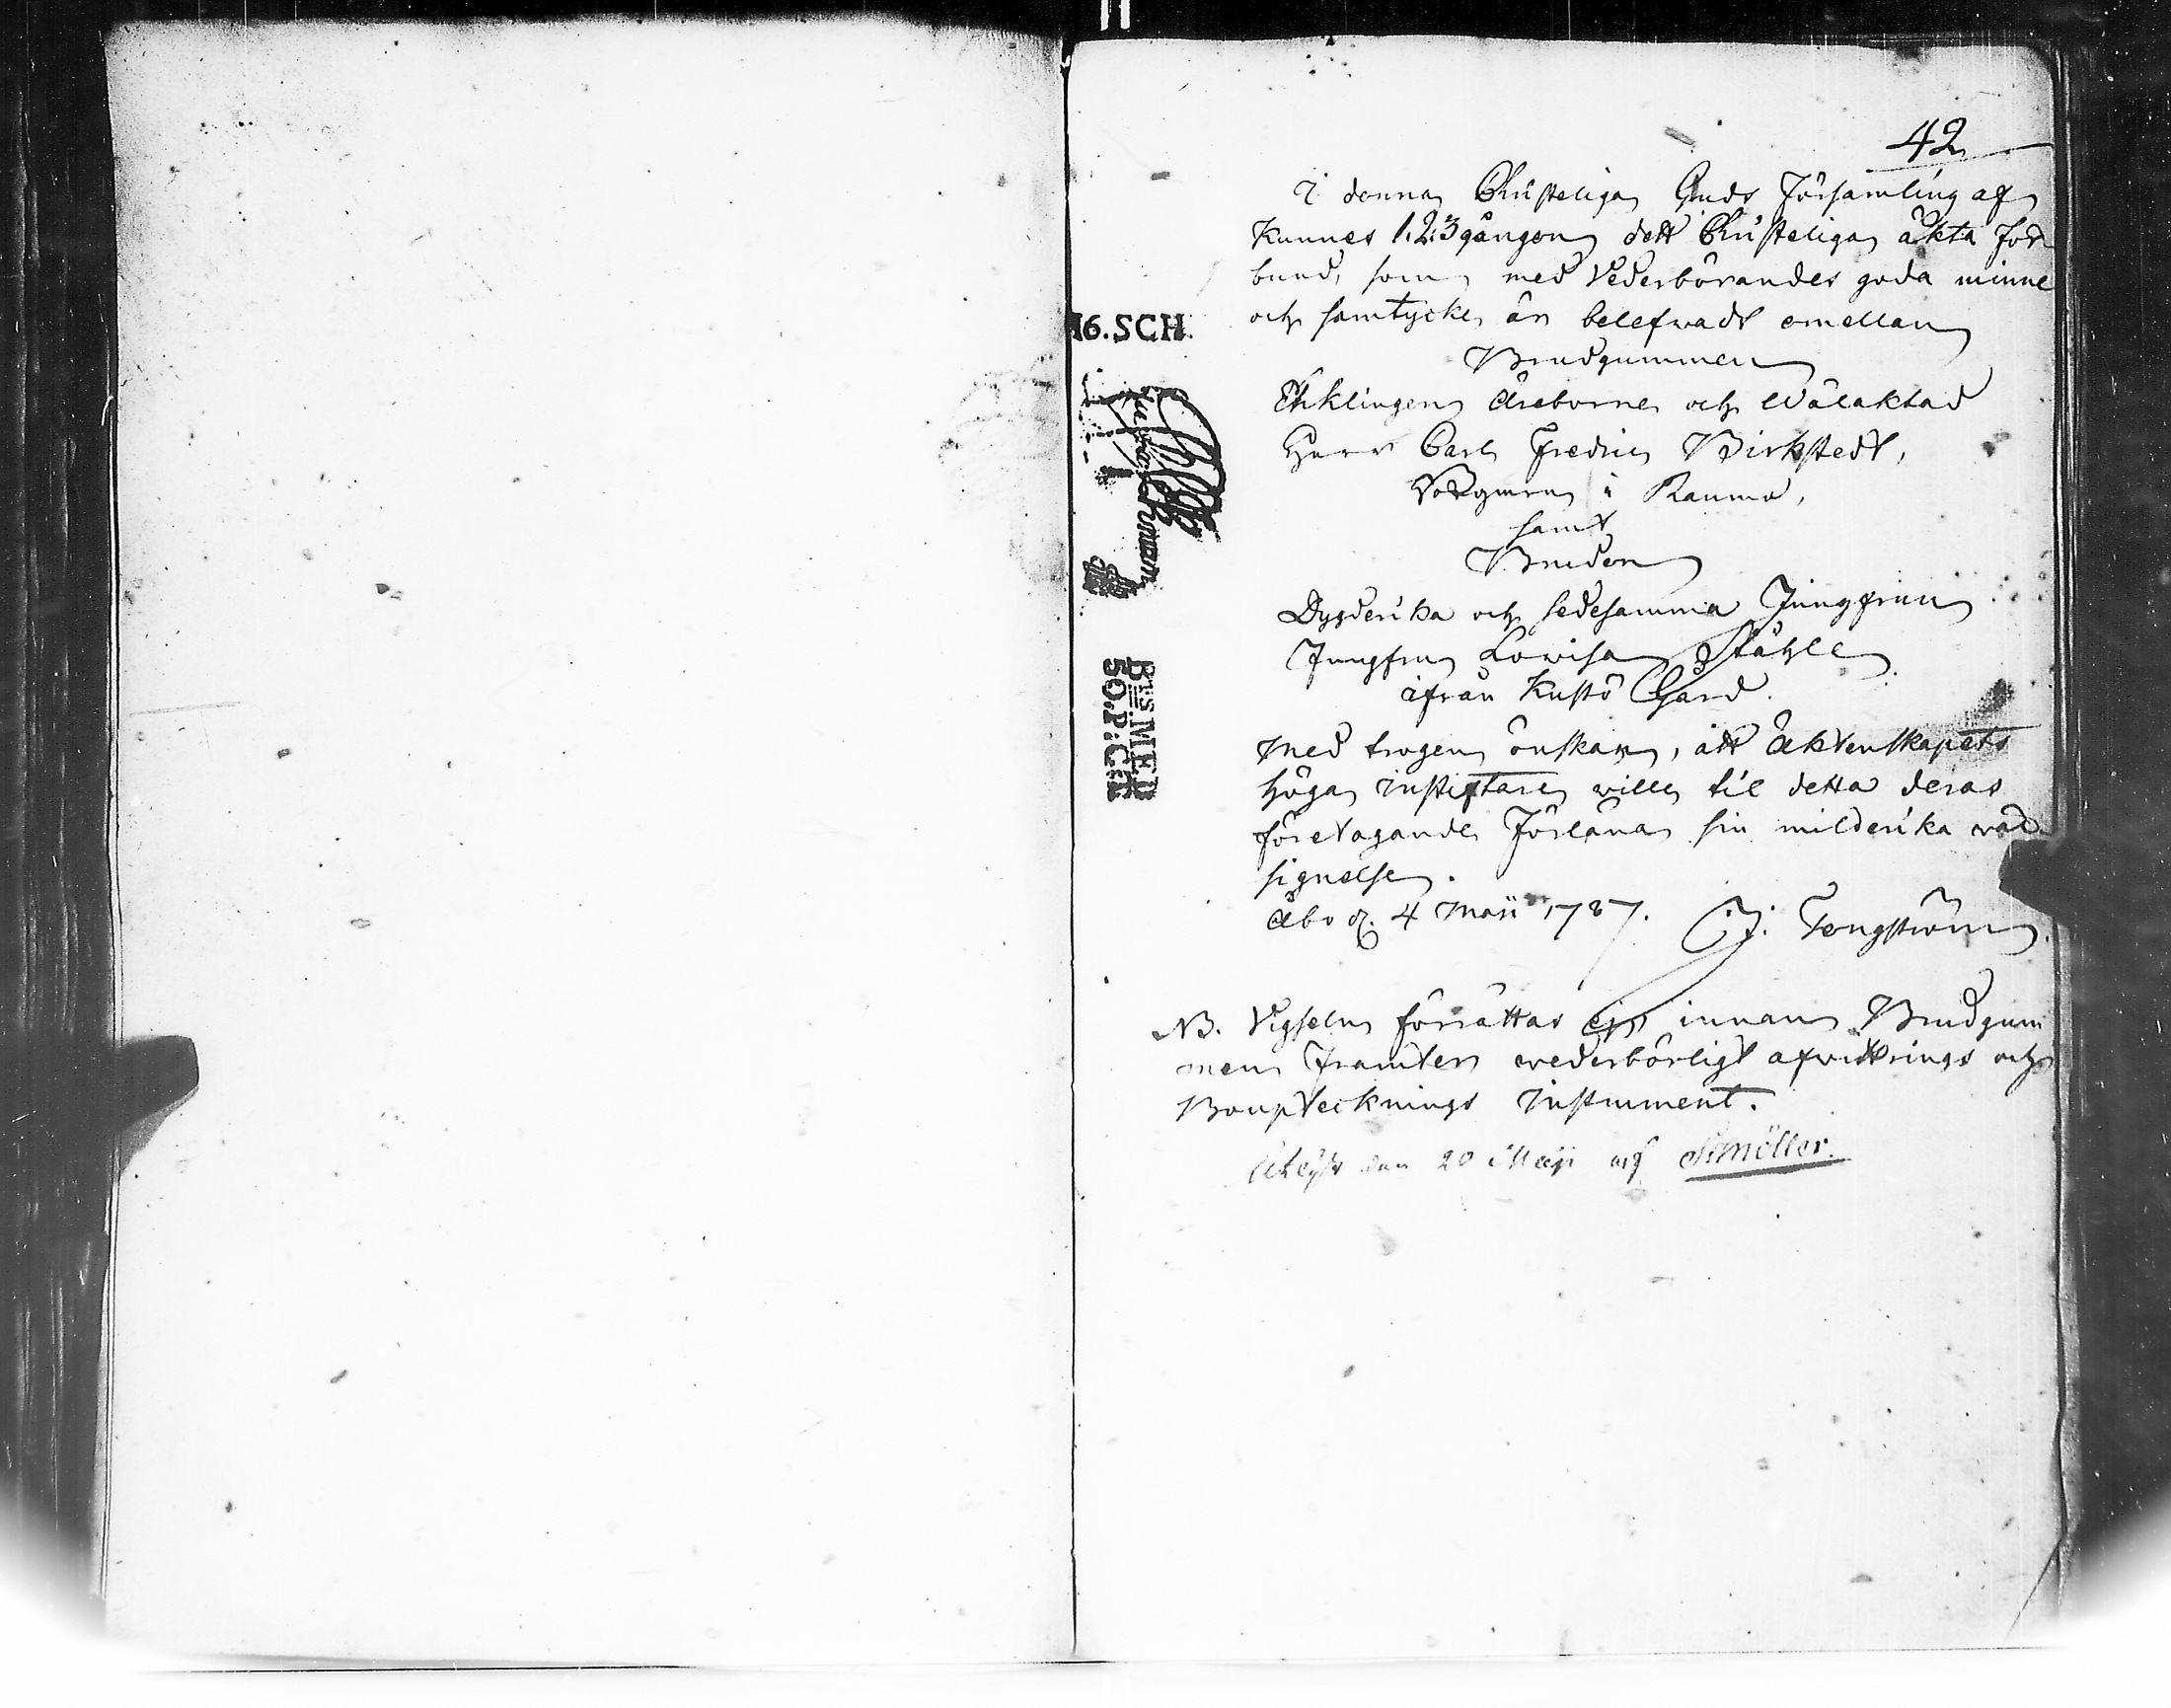 42
I denna Christeliga Guds Församling af
kunnes 1. 2. 3 gången dett Christeliga äkta för
bund, som med Vederbörandes goda minne
och samtycke är belefwadt emellan
Brudgummen
Enklingen Äreborne och Wälaktad
Herr Carl Fredric Birkstedt,
Borgmen i Raumo,
samt
Bruden
Dygderika och sedesamma Jungfrun
Jungfru Lowisa Ståhle
ifrån Kustö Gård.
Med trogen önskan, att Äktenskapets
höga Instiftare wille til detta deras
företagande Förläna sin milderika wäl
signelse.
Åbo d. 4 Maii 1787. J: Tengström.
NB. Vigseln förrättas ej innan Brudgum
men framter wederbörligt afwittrings och
Bouptecknings Instrument.
Utlyst den 20 Maji af Möller.
16.SCH.
BTSMED
50.P:CT